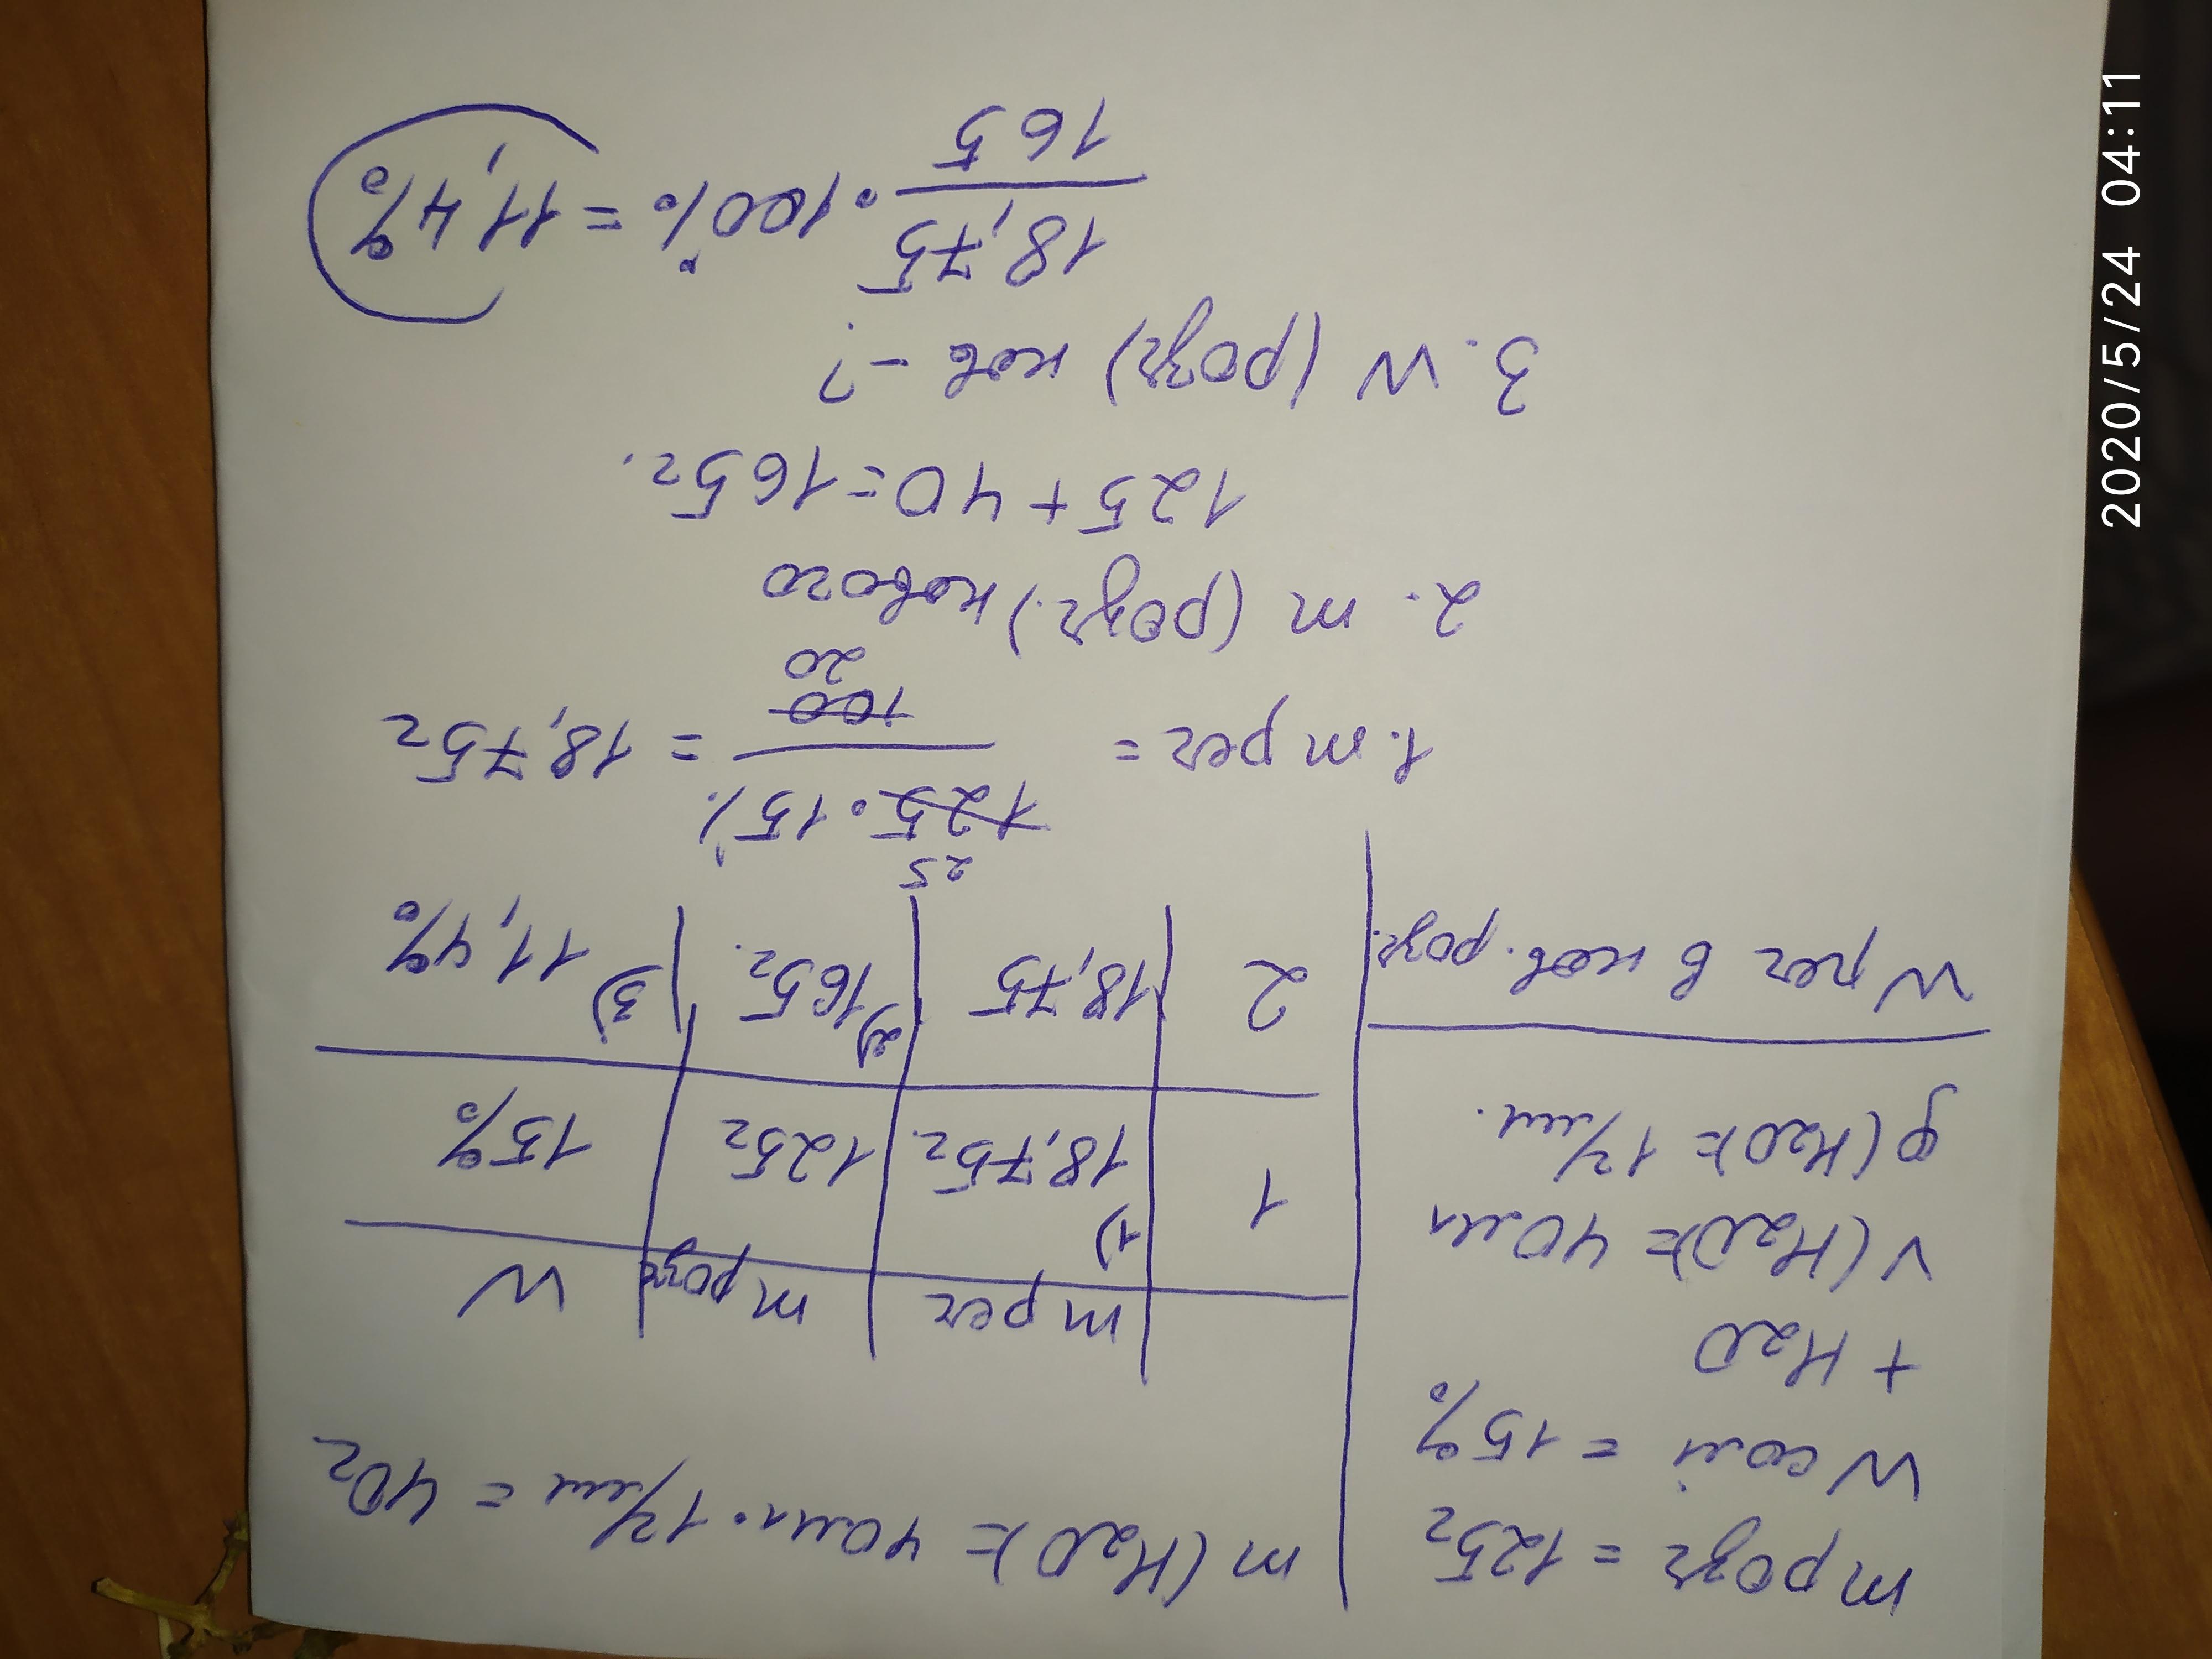 m розч = 125г
W солі = 15%
+ H2O
V(H2O) = 40мл
ρ(H2O) = 1г/мл.
W реч в нов. розч.
m(H2O) = 40мл · 1г/мл = 40г
m реч | m розч | W
1 | 1) 18,75г. | 125г | 15%
2 | 18,75 | 2) 165г. | 3) 11,4%
25
1. m реч = 125 · 15 / 100 = 18,75г
20
2. m (розч.) нового
125 + 40 = 165г.
3. W (розч) нов - ?
18,75 / 165 · 100% = 11,4%
2020/5/24 04:11